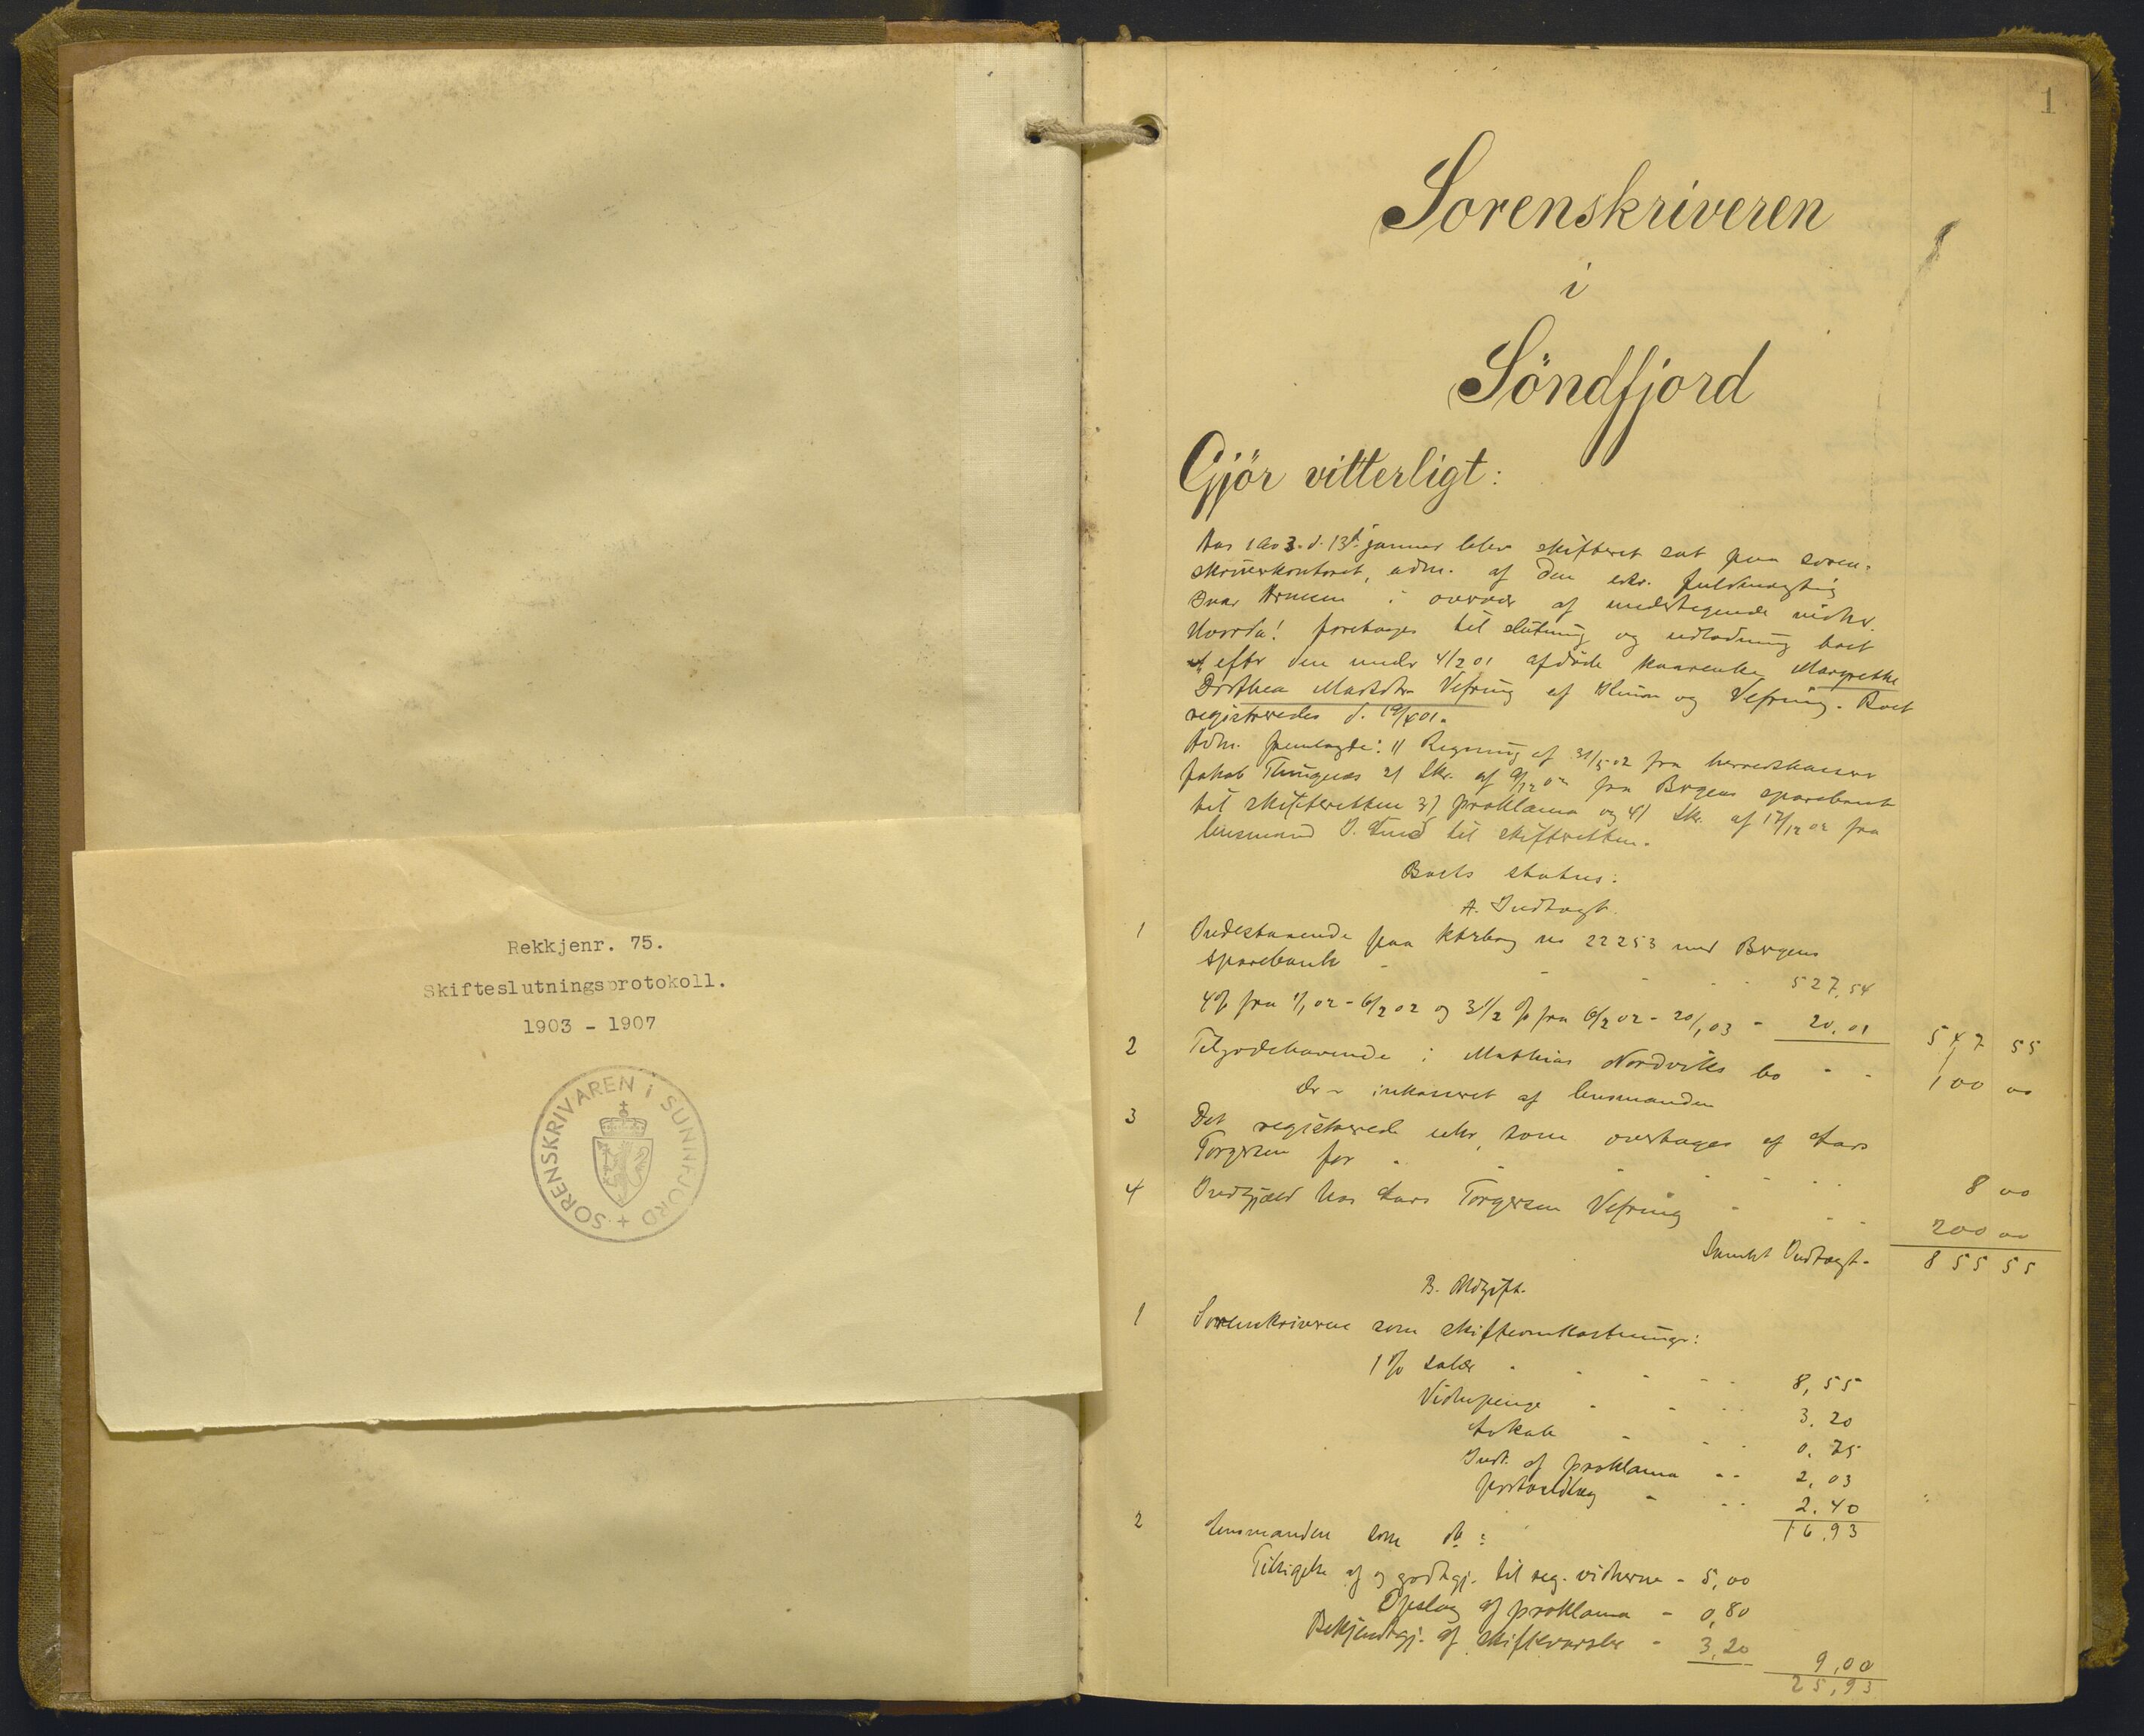 Rekkjenr. 75.
Skifteslutningsprotokoll.
1903 - 1907
SORENSKRIVAREN i SUNNFJORD
1
Sorenskriveren
i
Söndfjord
Gjör vitterligt:
Aar 1903 d. 13de januar blev skifteret sat paa soren-
skriverkontoret, adm. af den edsv. fuldmægtig
i overvær af undertegnede vidner.
Hvorda! foretoges til slutning og udlodning boet
efter den under 4/2 01 afdöde kaarenke Margrethe
Dorthea Madsdtr. Vefring af og Vefring. Boet
registreredes d. 19/4 01.
Adm. fremlagde: 1) Regning af 31/5 02 fra herredskasser
Jakob 2) Skr. af 9/12 02 fra Bergens sparebank
til skifteretten 3) proklama og 4) Skr. af 17/12 02 fra
lensmand J. Lund til skifteretten.
Boets status:
A. Indtægt.
1 Indestaaende paa ktrbog no 22253 med Bergens
sparebank - - - - 527,54
4% fra 1/1 02 - 6/2 02 og 3 1/2 % fra 6/2 02 - 20/1 03 - 20.01 547 55
2 Tilgodehavende i Mathias Nordviks bo - - 100 00
er inkasseret af lensmanden
3 Det registrerede uhr, som overtages af Lars
Torgersen for - - - - - 8 00
4 Indgjæld hos Lars Torgersen Vefring - - - 200 00
Samlet Indtægt - 855 55
B. Udgift.
1 Sorenskriveren som skifteomkostninger:
1% salær - - - - - 8,55
Vidnepenge - - - - 3.20
Lokale - - - 0.75
Indr. af proklama - - 2,03
portoudlæg - - - 2.40
16.93
2 Lensmanden som do:
Tilsigelse af og godtgj. til reg. vidnerne - 5,00
Opslag af proklama - 0,80
Bekjendtgj. af skiftevarsler - 3,20
9,00
25,93